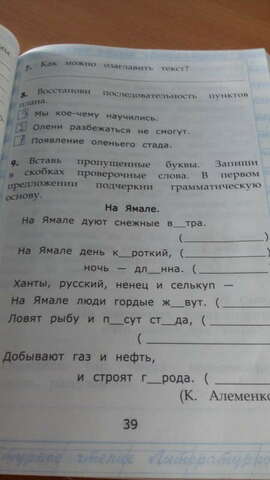 7. Как можно озаглавить текст?
8. Восстанови последовательность пунктов
плана.
3 Мы кое-чему научились.
2 Олени разбежаться не смогут.
1 Появление оленьего стада.
9. Вставь пропущенные буквы. Запиши
в скобках проверочные слова. В первом
предложении подчеркни грамматическую
основу.
На Ямале.
На Ямале дуют снежные в__тра.
(__________)
На Ямале день к__роткий, (__________
ночь — дл__нна. (__________
Ханты, русский, ненец и селькуп —
На Ямале люди гордые ж__вут. (__________
Ловят рыбу и п__сут ст__да, (__________
(__________
Добывают газ и нефть,
и строят г__рода. (__________
(К. Алеменко
39
чтение Литературно